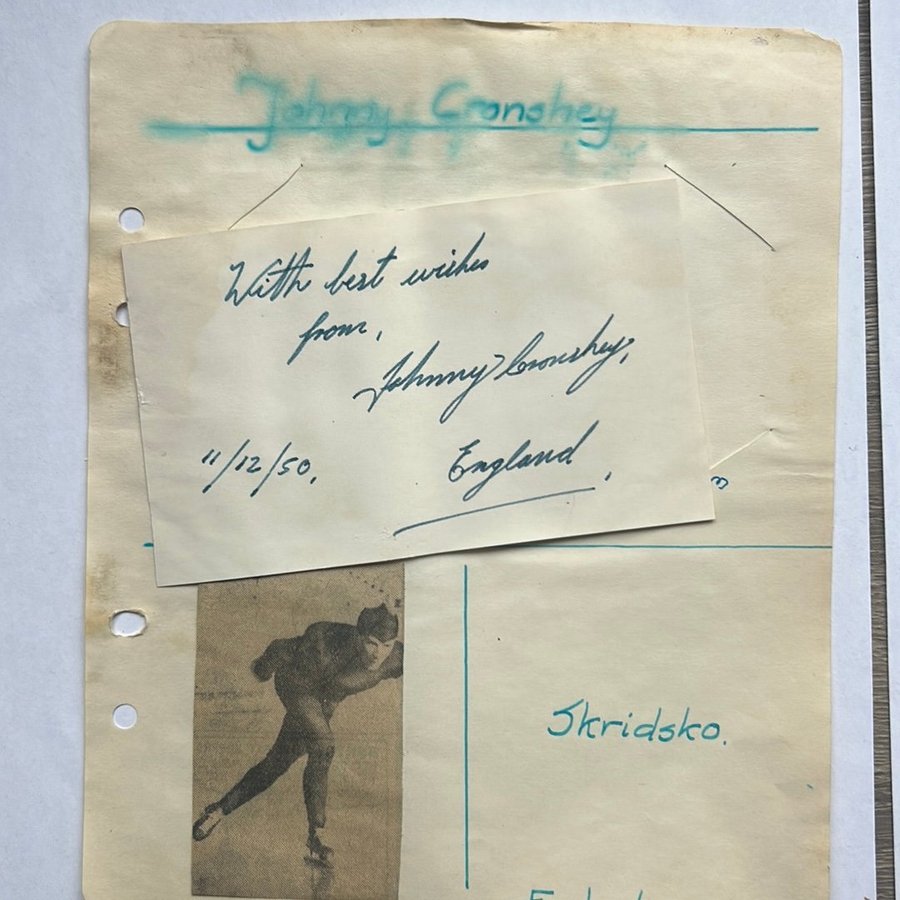 Johnny Cronshey
With best wishes
from,
Johnny Cronshey,
11/12/50,
England,
Skridsko.